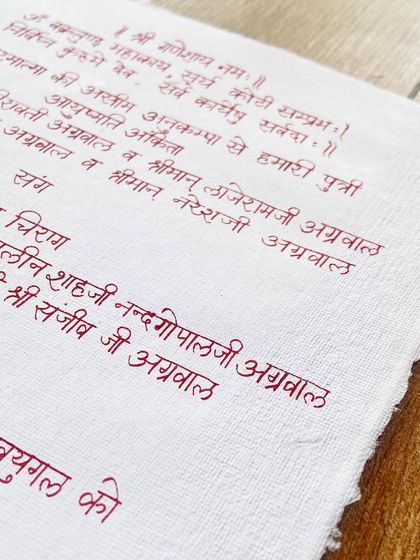 ॥ श्री गणेशाय नमः ॥
ॐ वक्रतुण्ड महाकाय, सूर्य कोटी सम्प्रभः।
निर्विघ्नं कुरुमे देव सर्व कार्येषु सर्वदाः॥
परमात्मा की असीम अनुकम्पा से हमारी पुत्री
आयुष्मति अंकिता
अग्रवाल व श्रीमान् लाजेरामजी अग्रवाल
अग्रवाल व श्रीमान् नरेशजी अग्रवाल
संग
चिराग
शाहजी नन्दगोपालजी अग्रवाल
श्री संजीव जी अग्रवाल
को